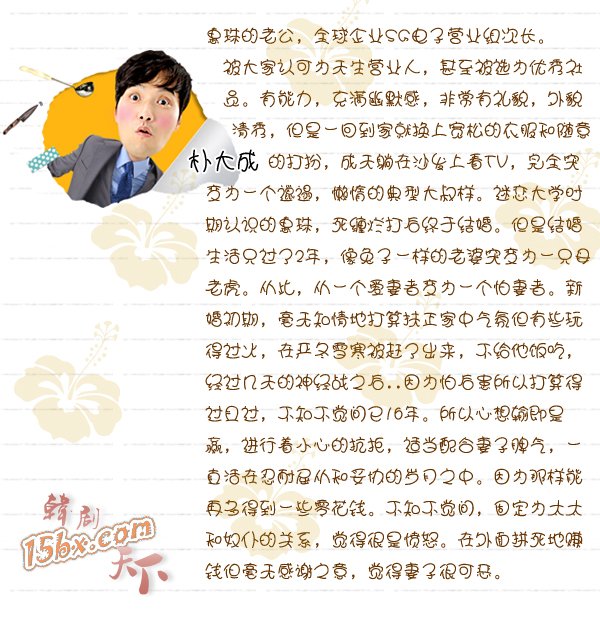 惠珠的老公，全球企业SG电子营业组次长。
被大家认可为天生营业人，甚至被选为优秀社
员。有能力，充满幽默感，非常有礼貌，外貌
清秀，但是一回到家就换上宽松的衣服和随意
朴大成
的打扮，成天躺在沙发上看TV，完全突
变为一个邋遢，懒惰的典型大叔样。迷恋大学时
期认识的惠珠，死缠烂打后终于结婚。但是结婚
生活只过了2年，像兔子一样的老婆突变为一只母
老虎。从此，从一个爱妻者变为一个怕妻者。新
婚初期，毫无知情地打算扶正家中气氛但有些玩
得过火，在严冬雪寒被赶了出来，不给他饭吃，
经过几天的神经战之后..因为怕后害所以打算得
过且过，不知不觉间已16年。所以心想输即是
赢，进行着小心的抗拒，适当配合妻子脾气，一
直活在忍耐屈从和妥协的岁月之中。因为那样能
再多得到一些零花钱。不知不觉间，固定为太太
和奴仆的关系，觉得很是愤怒。在外面拼死地赚
钱但毫无感谢之意，觉得妻子很可恶。
韓剧
15bx.com
天下